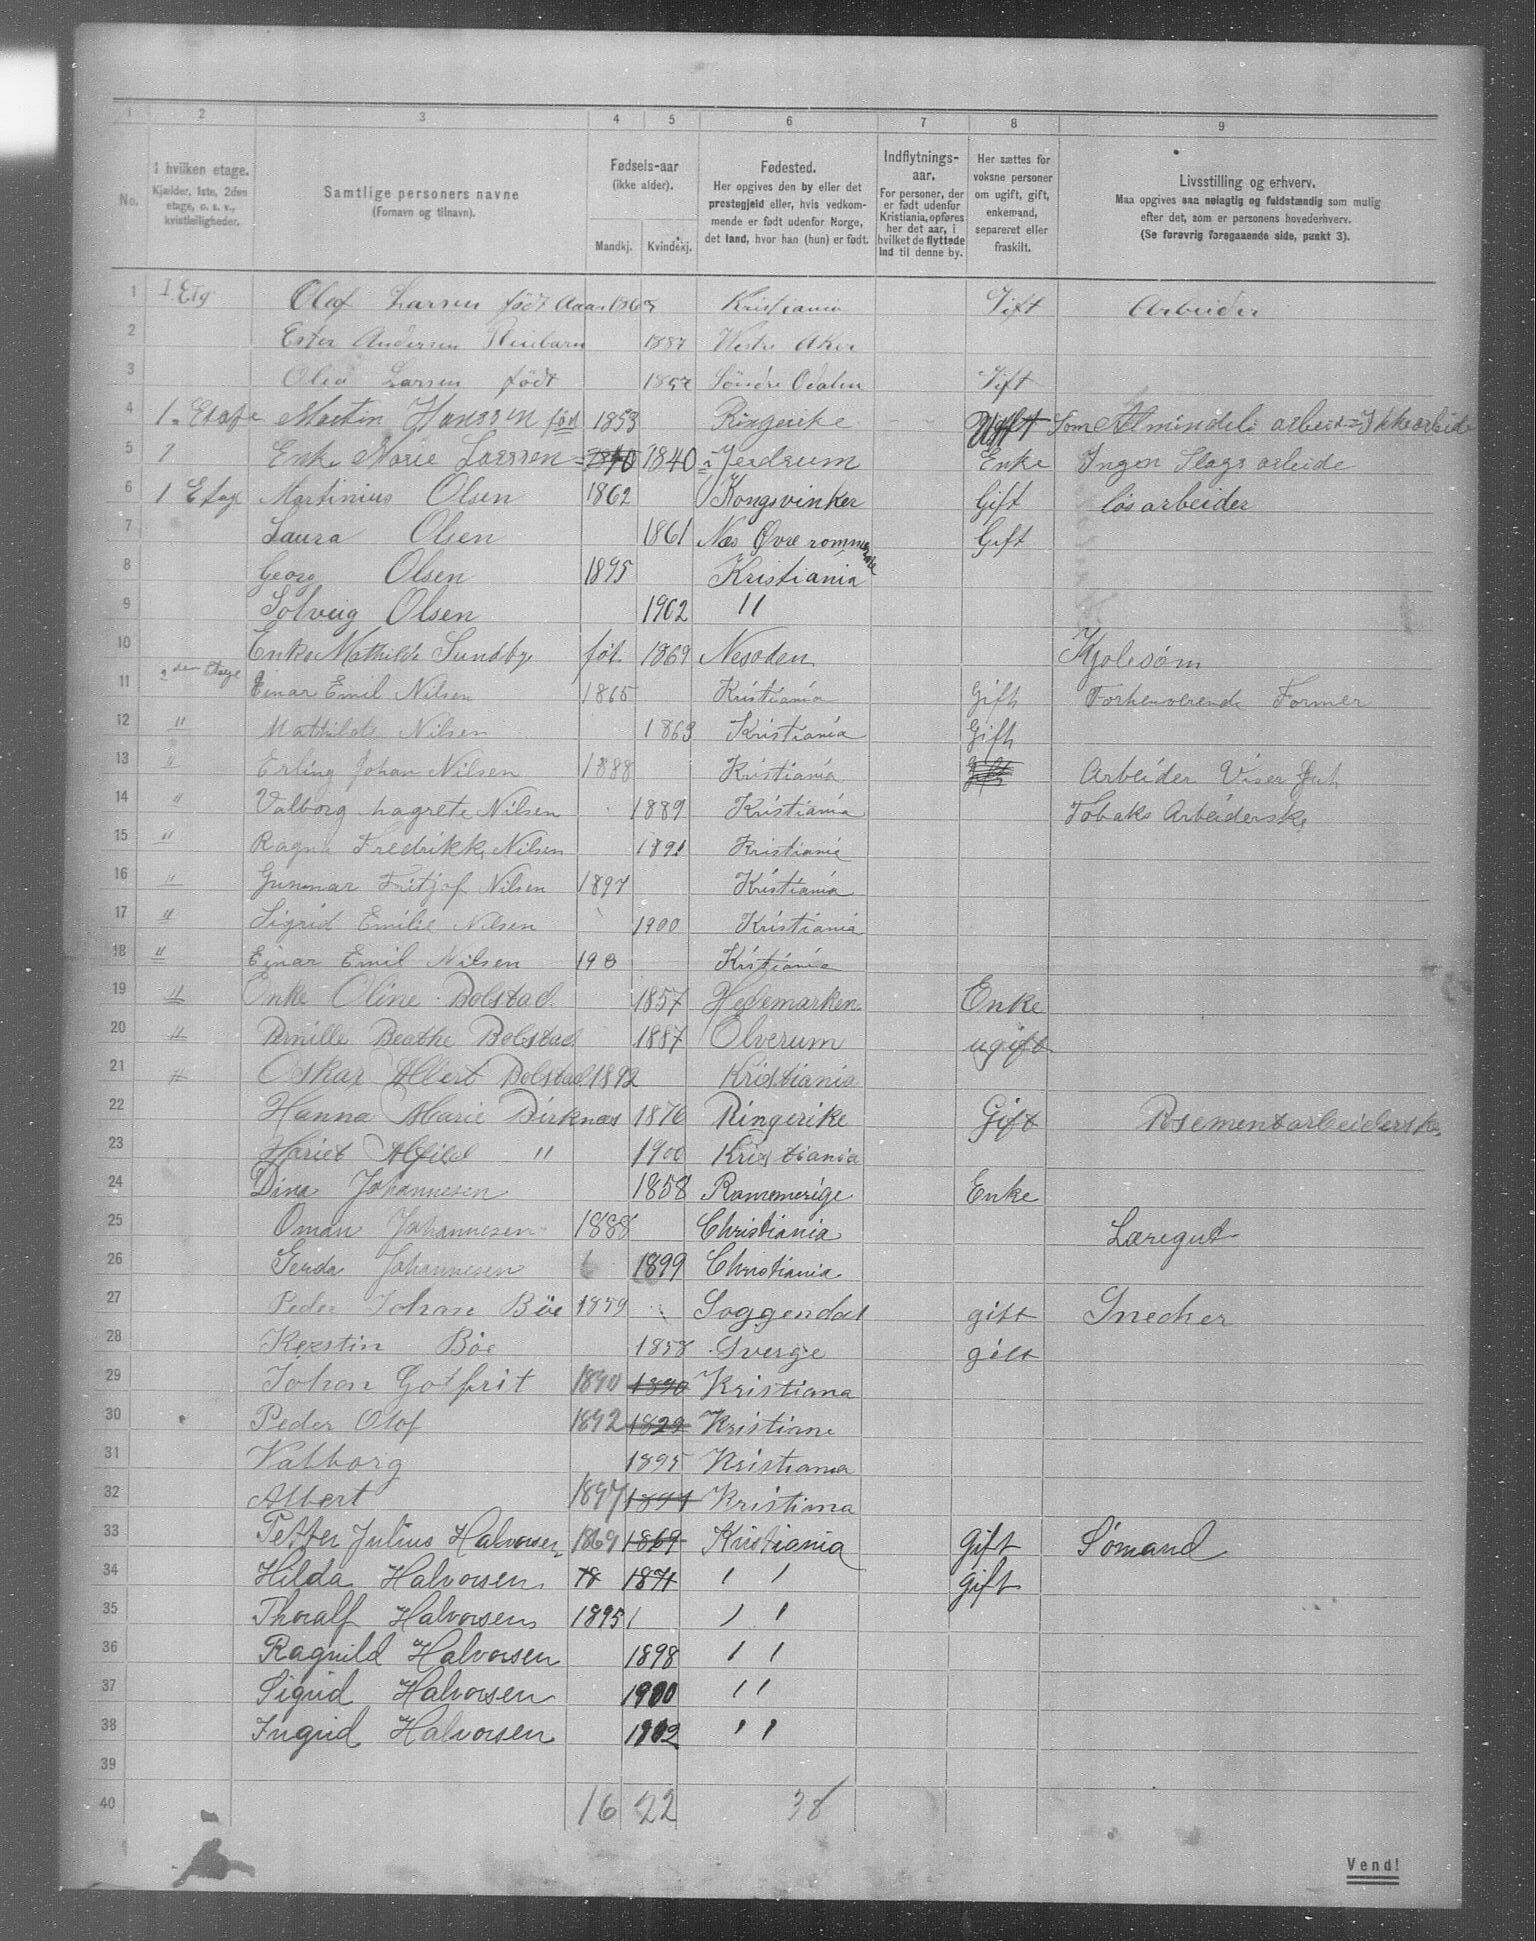 1 2 3 4 5 6 7 8 9
No.
I hvilken etage.
Kjælder, 1ste, 2den
etage, o. s. v.,
kvistleiligheder.
Samtlige personers navne
(Fornavn og tilnavn).
Fødsels-aar
(ikke alder).
Mandkj. Kvindekj.
Fødested.
Her opgives den by eller det
prestegjeld eller, hvis vedkom-
mende er født udenfor Norge,
det land, hvor han (hun) er født.
Indflytnings-
aar.
For personer, der
er født udenfor
Kristiania, opføres
her det aar, i
hvilket de flyttede
ind til denne by.
Her sættes for
voksne personer
om ugift, gift,
enkemand,
separeret eller
fraskilt.
Livsstilling og erhverv.
Maa opgives saa nøiagtig og fuldstændig som mulig
efter det, som er personens hovederhverv.
(Se forøvrig foregaaende side, punkt 3).
1 I Etg Olaf Larsen født Aar Kristiania Gift Arbeider
2 Ester Andersen Pleiebarn 1887 Vestre Aker
3 Olea Larsen født Søndre Odalen Gift
4 1. Etage Martin Hanssen fød 1853 Ringerike Som Almindeli arbeid Ikkearbeide
5 Enke Marie Larssen 1840 Jerdrum Enke Ingen Slags arbeide
6 1 Etage Martinius Olsen 1862 Kongsvinker Gift løsarbeider
7 Laura Olsen 1861 Næs Øvre romerike Gift
8 Georg Olsen 1895 Kristiania
9 Solveig Olsen 1902 "
10 Enke Mathilde Sundby føt 1869 Nesoden Kjolesøm
11 2den Etage Einar Emil Nilsen 1865 Kristiania Gift Forhenverende Former
12 " Mathilde Nilsen 1863 Kristiania Gift
13 " Erling Johan Nilsen 1888 Kristiania Gift Arbeider Viser Gut
14 " Valborg Nilsen 1889 Kristiania Tobaks Arbeiderske
15 " Ragna Fredrikke Nilsen 1891 Kristiania
16 " Gunnar Fritjof Nilsen 1897 Kristiania
17 " Sigrid Emilie Nilsen 1900 Kristiania
18 " Einar Emil Nilsen Kristiania
19 " Enke Oline Bolstad 1857 Hedemarken Enke
20 " Pernille Beathe Bolstad 1887 Elverum ugift
21 " Oskar Albert Bolstad 1892 Kristiania
22 Hanna Marie Birknæs 1876 Ringerike Gift Posementarbeiderske
23 Hariet Alfild " 1900 Kristiania
24 Dina Johannesen 1858 Romerige Enke
25 Oman Johannesen 1888 Christiania Læregut
26 Gerda Johannesen 1899 Christiania
27 Peder Johan Bøe 1859 Soggendal gift Snecker
28 Kerstin Bøe 1858 Sverge gift
29 Johan Gotfrit 1890 1890 Kristiana
30 Peder Olof 1892 Kristiane
31 Valborg 1895 Kristiania
32 Albert 1897 1897 Kristiana
33 Petter Julius Halvorsen 1869 1869 Kristiania Gift Sømand
34 Hilda Halvorsen 18 1871 " gift
35 Thoralf Halvorsen 1895 "
36 Ragnild Halvorsen 1898 "
37 Sigrid Halvorsen 1900 "
38 Ingrid Halvorsen 1902 "
39
40 16 22 38
Vend!